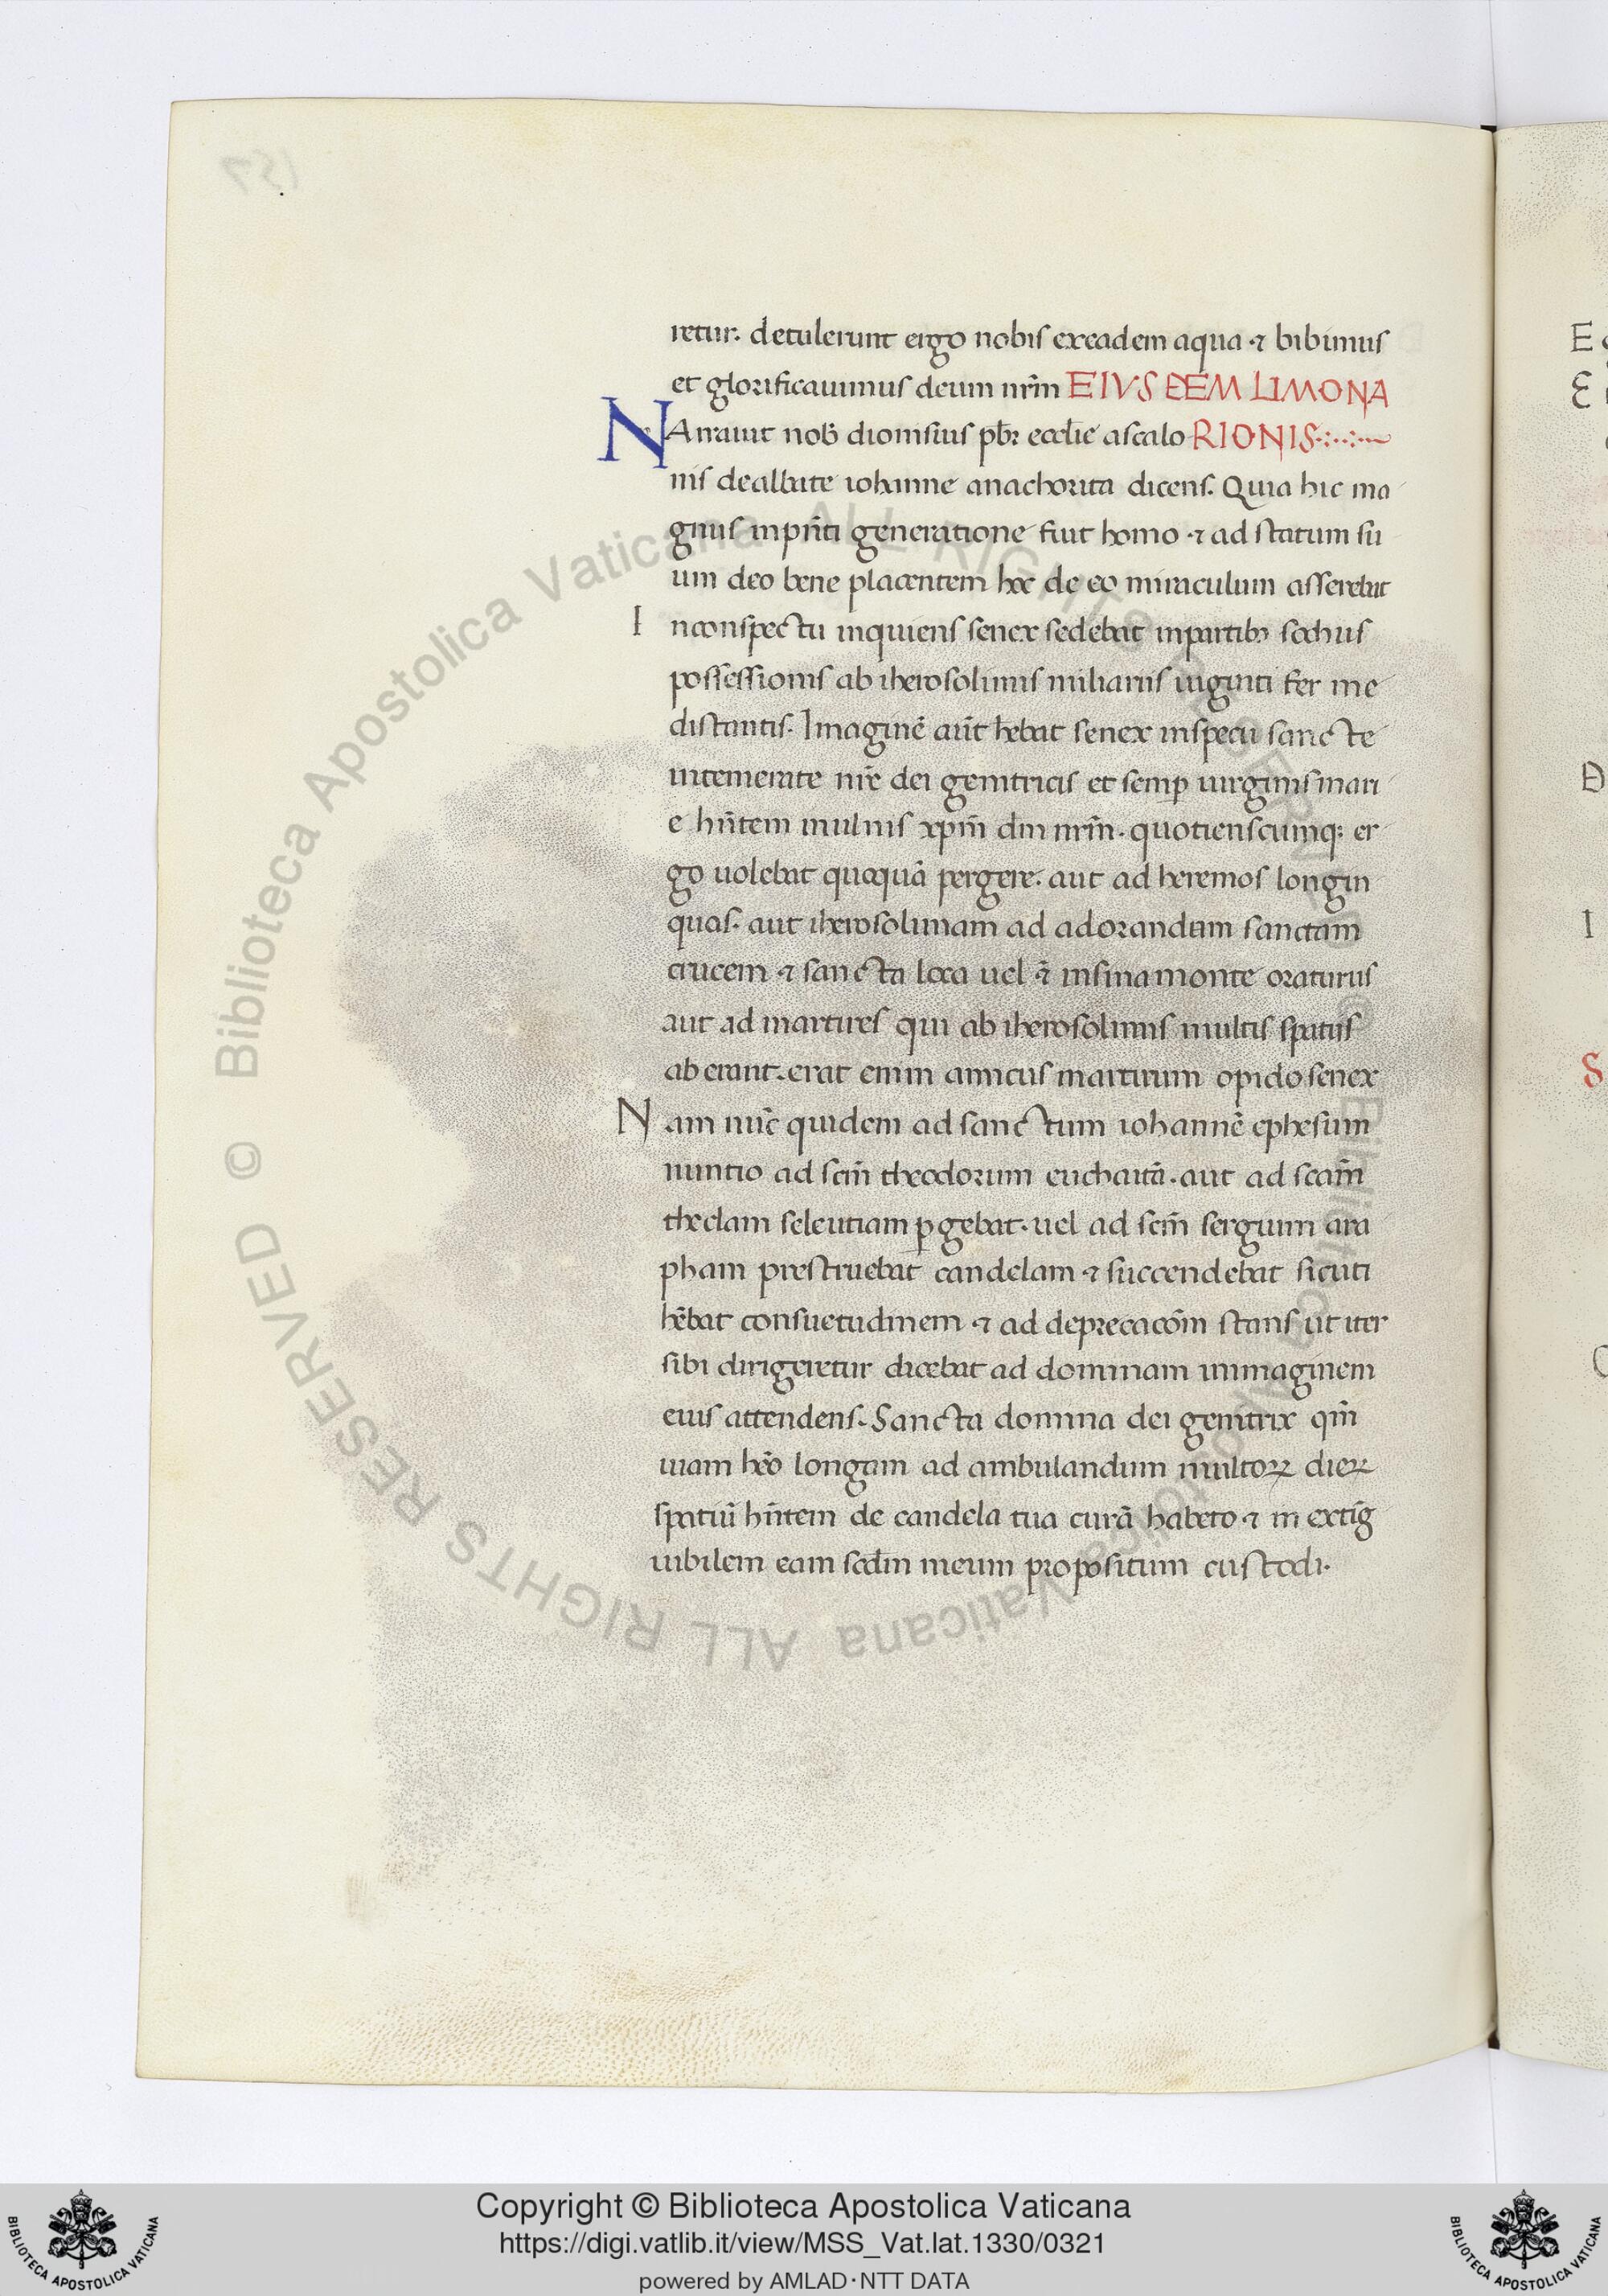 retur. detulerunt ergo nobis exeadem aqua ⁊ bibimus
et glorificauimus deum nr̄m EIVSDEM LIMONA
NArrauit nob̄ dionisius pb̄r eccl̄ie ascalo RIONIS
nis de abbate iohanne anachorita dicens. Quia hic ma
gnus inpn̄ti generatione fuit homo ⁊ ad statum su
um deo bene placentem hoc de eo miraculum asserebat
Inconspectu inquiens senex sedebat inpartibꝫ sochus
possessionis ab iherosolimis miliariis uiginti fer me
distantis. Imaginē aūt hēbat senex inspecu sancte
intemerate nr̄e dei genitricis et semꝑ uirginis mari
e hn̄tem inulnis xp̄m dn̄m nr̄m. quotienscumqꝫ er
go uolebat quoquā pergere. aut ad heremos longin
quas. aut iherosolimam ad adorandam sanctam
crucem ⁊ sancta loca uel ⁊̄ insina monte oraturus
aut ad martires qui ab iherosolimis multis spatiis
aberant. erat enim amicus martirum opido senex
Nam nūc quidem ad sanctum iohannē ephesum
nuntio ad scm̄ theodorum euchaitā. aut ad scam̄
theclam seleutiam ꝑgebat. uel ad scm̄ sergium ara
pham prestruebat candelam ⁊ succendebat sicuti
hēbat consuetudinem ⁊ ad deprecacōm stans ut iter
sibi dirigeretur dicebat ad dominam immaginem
eius attendens. Sancta domina dei genitrix qm̄
uiam hēo longam ad ambulandum multoꝝ dieꝝ
spatiū hn̄tem de candela tua curā habeto ⁊ in extīg
uibilem eam scd̄m meum propositum custodi.
© Biblioteca Apostolica Vaticana ALL RIGHTS RESERVED © Biblioteca Apostolica Vaticana ALL RIGHTS RESERVED
E
D
I
S
Copyright © Biblioteca Apostolica Vaticana
https://digi.vatlib.it/view/MSS_Vat.lat.1330/0321
powered by AMLAD·NTT DATA
BIBLIOTECA APOSTOLICA VATICANA
BIBLIOTECA APOSTOLICA VATICANA